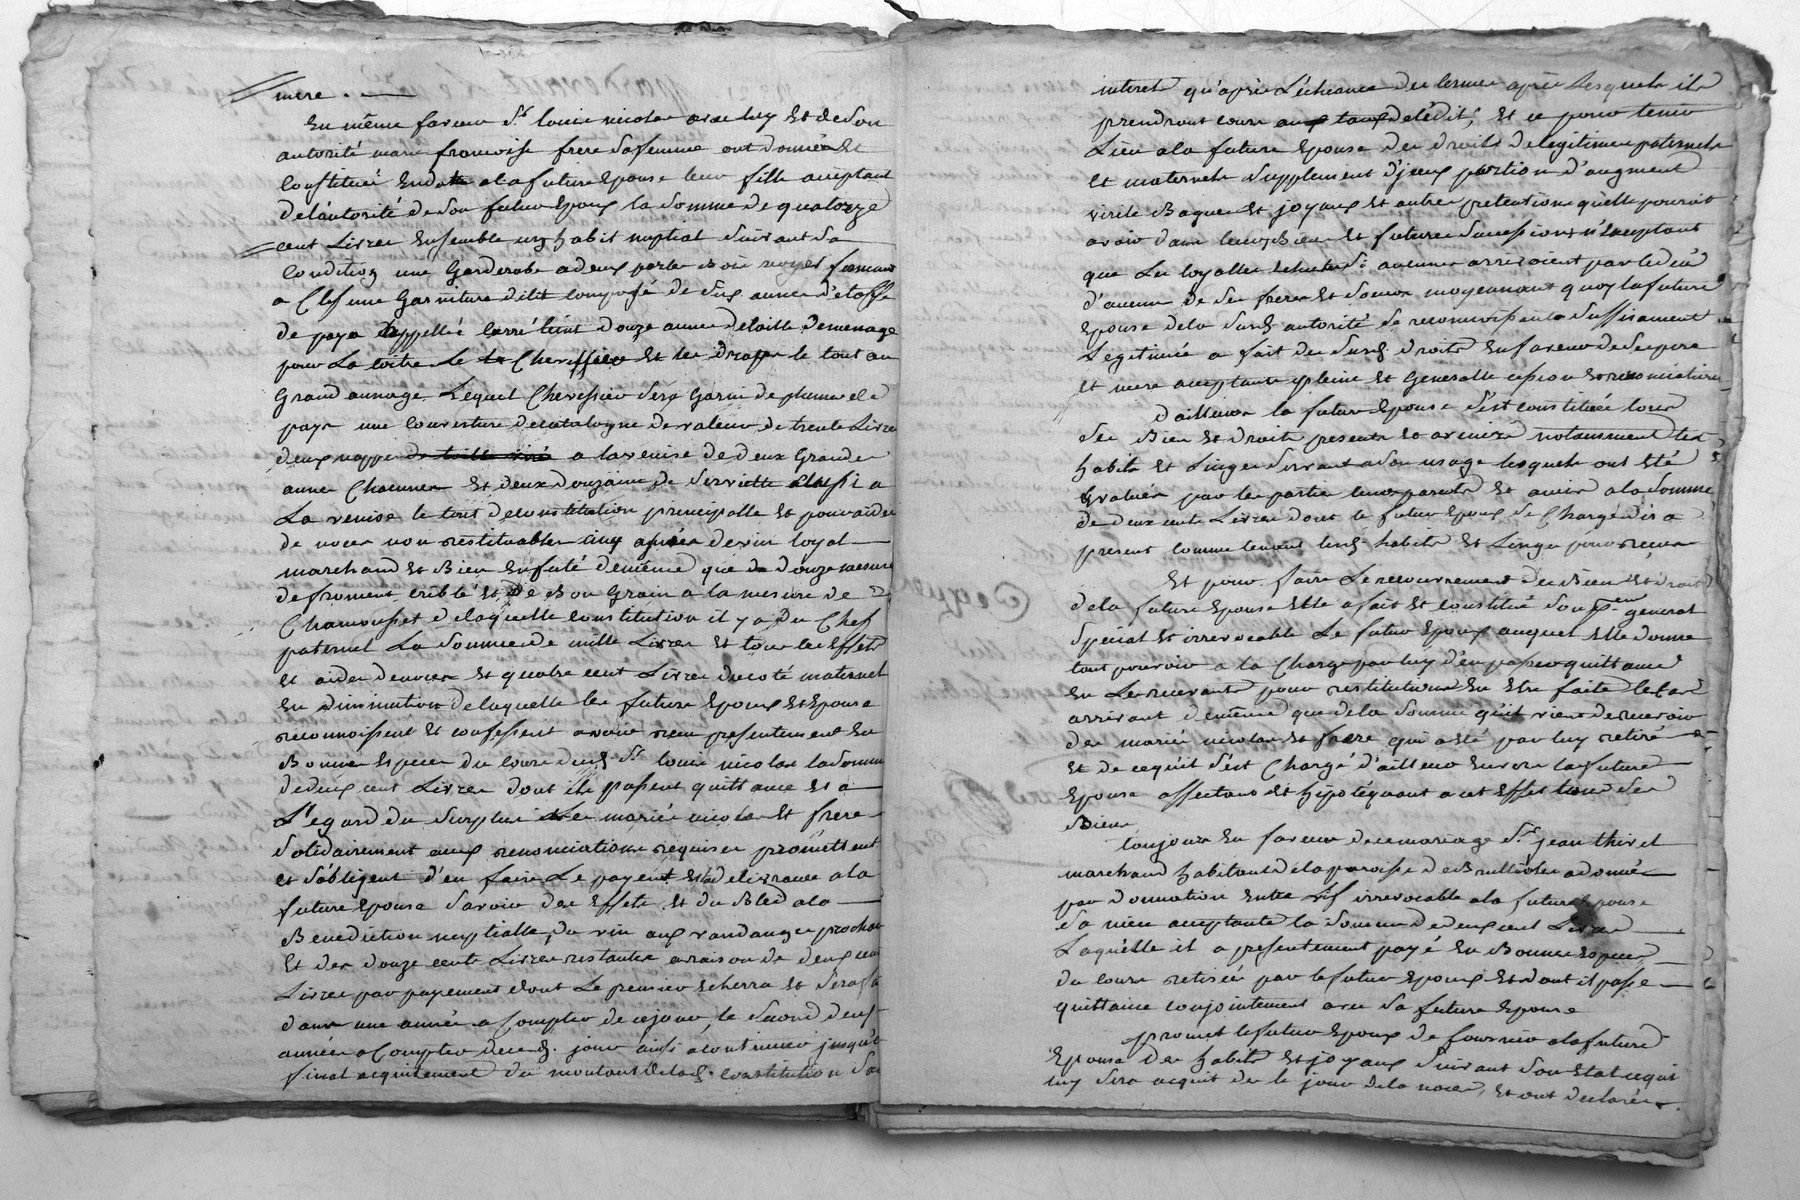 mere . —
En même faveur Sr louis nicolas avec luy et de son
autorité marie françoise frere sa femme ont donnés et
Constitué en dote a la future Epouse leur fille acceptant
de l'autorité de son futur Epoux la somme de quatorze
cent Livres Ensemble un habit nuptial suivant sa
Condition une Garderobe a deux portes bois noyer fermant
a Clef une Garniture de lit composé de six aunes d'etoffe
de pays appellé carré teint douze aunes de toille de menage
pour La Coitre Le Chevessier et les draps le tout au
Grand aunage Lequel Chevessier sera Garni de plumes de
pays une couverture de catalogne de valeur de trente Livres
deux nappes de toille a la venise de deux Grandes
aunes Chacunes et deux douzaine de serviette aussi a
La venise le tout de constitution principalle et pour aides
de noces non restituables cinq anées de vin loyal
marchand et Bien enfuté de même que douze mesures
de froment criblé et de Bon Grain a la mesure de
Chamousset de laquelle constitution il y a du Chef
paternel La somme de mille Livres et tous les Effets
et aides de noces et quatre cent Livres du coté maternel
En diminution de laquelle les futurs Epoux et Epouse
reconnoissent et confessent avoir reçu presentement En
Bonnes Especes du cours dud. Sr louis nicolas la somme
de deux cent Livres dont ils passent quittance et a
L'egard du surplus Les mariés nicolas et frere
solidairement aux renonciations requises promettent
et s'obligent d'en faire Le payent et delivrance a la
future Epouse savoir des Effets et du Bled a la
Benediction nuptialle, du vin aux vendanges prochain
Et des douze cents Livres restantes a raison de deux cent
Livres par payement dont Le premier echerra et sera fa
dans une année a Compter de ce jour, le second deux
années a Compter dece d. jour ainsi a continuer jusqu'a
final acquitement du montant de lad. constitution sa
interet qu'après L'echeance des termes après lesquels ils
prendront cours aux taux de l'édit; Et ce pour tenir
Lieu a la future Epouse des droits de legitimes paternels
Et maternels supplement d'jceux portion d'augment
virile Bagues et joyaux et autres pretentions quelle pouroit
avoir dans leurs Biens et futures successions n'Exceptant
que Les loyalles echutes si aucunes arrivoient par le décé
d'aucun de ses freres et soeurs moyennant quoy la future
Epouse de la susd. autorité se reconnoissante suffisament
Legitimée a fait des susd. droits en faveur de ses pere
et mere acceptants pleine et Generalle cession et renonciation
d'ailleurs la future Epouse s'est constituée tous
ses Biens et droits presents et avenirs notamment les
habits et Linges servant a son usage lesquels ont été
Evalués par les parties leurs parents et amis a la somme
de deux cents Livres dont le futur Epoux se Charge dès a
present comme tenant lesd. habits et Linges pour reçus
Et pour faire Le recouvrement des Biens et droits
de la future Epouse Elle a fait et constitué son pr. general
special et irrevocable Le futur Epoux auquel Elle donne
tout pouvoir a la Charge par luy d'en passer quittance
En Les recevants pour restitutions En Etre faite le cas
arrivant de même que de la somme qu'il vient de recevoir
des mariés nicolas et frere qui a été par luy retiré
Et de ce qu'il s'est Chargé d'ailleurs Envers la future
Epouse affectant et hipotéquant a cet Effet tous ses
Biens
toujours En faveur de ce mariage Sr jean thivel
marchand habitant de la paroisse de Brullioles a donné
par donnation entre vif irrevocable a la future Epouse
sa niece acceptante la somme de deux cent Livres
Laquelle il a presentement payé En Bonnes Especes
du cours retirées par le futur Epoux et dont il passe
quittance conjointement avec sa future Epouse
promet le futur Epoux de fournir a la future
Epouse des habits et joyaux suivant son Etat ce qui
luy sera acquit des le jour de la noces, et ont declarés